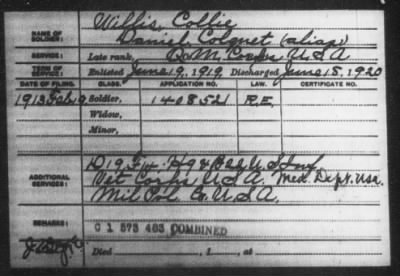 NAME OF SOLDIER: Willis, Collie
Daniel Colquet (alias)
SERVICE: Late rank, Q. M. Corps U S A
TERM OF SERVICE: Enlisted June 19, 1919, Discharged June 18, 1920
DATE OF FILING. CLASS. APPLICATION NO. LAW. CERTIFICATE NO.
Feb 9 Soldier, 140852 R.E.
Widow,
Minor,
ADDITIONAL SERVICES:
Vet Corps U S A. Med. Dept. USA.
Mil Pol Co. U S A.
REMARKS: C 1 573 463 COMBINED
Died , 1 , at